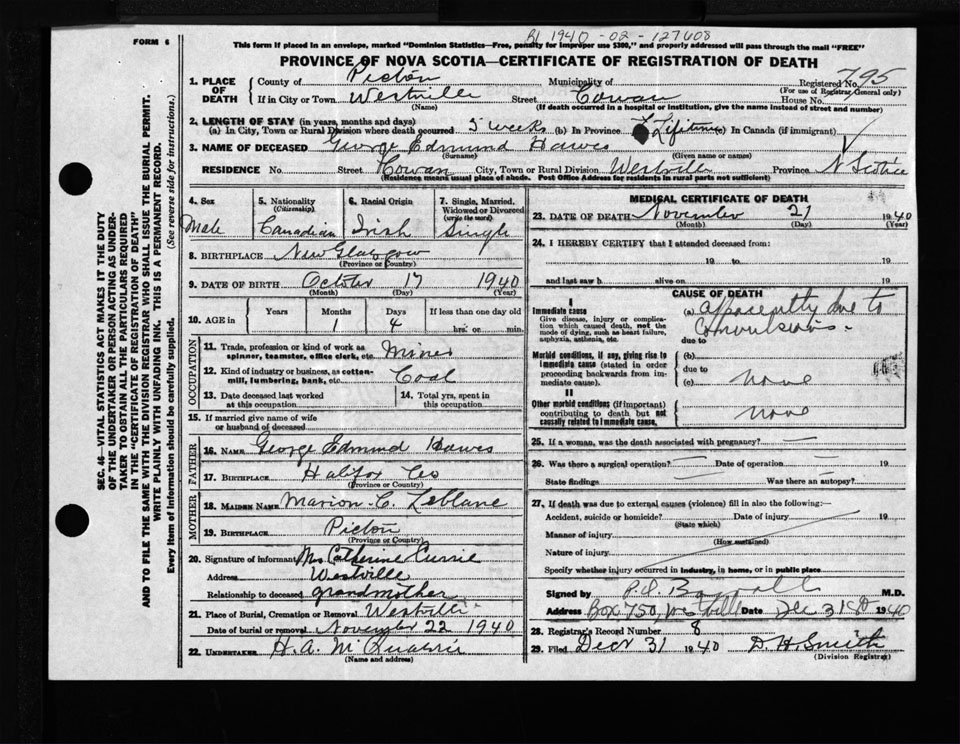 RL 1940-02-127608
FORM 6
This form if placed in an envelope, marked "Dominion Statistics—Free, penalty for improper use $300," and properly addressed will pass through the mail "FREE"
PROVINCE OF NOVA SCOTIA—CERTIFICATE OF REGISTRATION OF DEATH
SEC. 46—VITAL STATISTICS ACT MAKES IT THE DUTY
OF THE UNDERTAKER OR PERSON ACTING AS UNDER-
TAKER TO OBTAIN ALL THE PARTICULARS REQUIRED
IN THE "CERTIFICATE OF REGISTRATION OF DEATH"
AND TO FILE THE SAME WITH THE DIVISION REGISTRAR WHO SHALL ISSUE THE BURIAL PERMIT.
WRITE PLAINLY WITH UNFADING INK. THIS IS A PERMANENT RECORD.
Every item of information should be carefully supplied. (See reverse side for instructions.)
1. PLACE OF DEATH County of Picton Municipality of Registered No. 795
(For use of Registrar General only)
If in City or Town Westville Street Cowan House No.
(Name) (If death occurred in a hospital or institution, give the name instead of street and number)
2. LENGTH OF STAY (in years, months and days)
(a) In City, Town or Rural Division where death occurred 5 weeks (b) In Province Lifetime (c) In Canada (if immigrant)
3. NAME OF DECEASED George Edmund Hawes
(Surname) (Given name or names)
RESIDENCE No. Street Cowan City, Town or Rural Division Westville Province N Scotia
(Residence means usual place of abode. Post Office Address for residents in rural parts not sufficient)
4. Sex Male
5. Nationality (Citizenship) Canadian
6. Racial Origin Irish
7. Single, Married, Widowed or Divorced (write the word) Single
8. BIRTHPLACE New Glasgow
(Province or Country)
9. DATE OF BIRTH October 17 1940
(Month) (Day) (Year)
10. AGE in Years Months 1 Days 4 If less than one day hrs. or min.
OCCUPATION
11. Trade, profession or kind of work as spinner, teamster, office clerk, etc. Miner
12. Kind of industry or business, as cotton-mill, lumbering, bank, etc. Coal
13. Date deceased last worked at this occupation
14. Total yrs. spent in this occupation
15. If married give name of wife or husband of deceased
FATHER
16. NAME George Edmund Hawes
17. BIRTHPLACE Halifax Co
(Province or Country)
MOTHER
18. MAIDEN NAME Marion C. Leblanc
19. BIRTHPLACE Picton
(Province or Country)
20. Signature of informant Mrs Catherine Currie
Address Westville
Relationship to deceased grandmother
21. Place of Burial, Cremation or Removal Westville
Date of burial or removal November 22 1940
22. UNDERTAKER H. A. McQuarrie
(Name and address)
MEDICAL CERTIFICATE OF DEATH
23. DATE OF DEATH November 21 1940
(Month) (Day) (Year)
24. I HEREBY CERTIFY that I attended deceased from:
19 to 19
and last saw h alive on 19
CAUSE OF DEATH
I
Immediate cause
Give disease, injury or complication which caused death, not the mode of dying, such as heart failure, asphyxia, asthenia, etc.
(a) apparently due to convulsions.
due to
Morbid conditions, if any, giving rise to immediate cause (stated in order proceeding backwards from immediate cause).
(b)
due to
(c) none
II
Other morbid conditions (if important) contributing to death but not causally related to immediate cause.
none
25. If a woman, was the death associated with pregnancy? —
26. Was there a surgical operation? — Date of operation — 19
State findings Was there an autopsy?
27. If death was due to external causes (violence) fill in also the following:
Accident, suicide or homicide? Date of injury 19
(State which)
Manner of injury
(How sustained)
Nature of injury
Specify whether injury occurred in industry, in home, or in public place
Signed by M.D.
Address Box 750, Westville Date Dec 31st 1940
28. Registrar's Record Number 8
29. Filed Decr 31 1940 D. H. Smith
(Division Registrar)